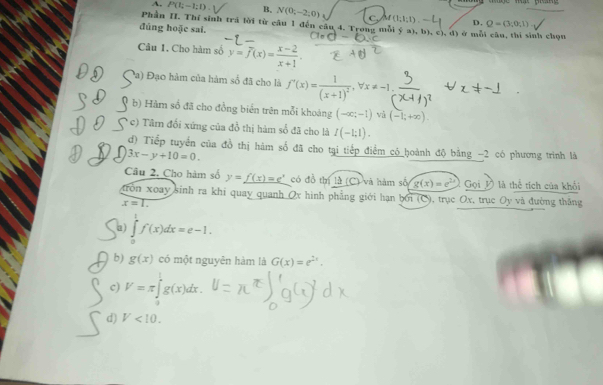 A. P(1;-1;1).
B. N(0;-2;0)
C. M(1;1;1).
D. Q = (3;0;1)
Phần II. Thí sinh trả lời từ câu 1 đến câu 4. Trong mỗi ý a), b), c), d) ở mỗi câu, thí sinh chọn
đúng hoặc sai.
Câu 1. Cho hàm số y = f(x) = \frac{x-2}{x+1}.
Đ a) Đạo hàm của hàm số đã cho là f'(x) = \frac{1}{(x+1)^2}, ∀x ≠ -1. \frac{3}{(x+1)^2} ∀x ≠ -1.
S Đ b) Hàm số đã cho đồng biến trên mỗi khoảng (-∞;-1) và (-1;+∞).
S c) Tâm đối xứng của đồ thị hàm số đã cho là I(-1;1).
d) Tiếp tuyến của đồ thị hàm số đã cho tại tiếp điểm có hoành độ bằng -2 có phương trình là
3x - y + 10 = 0.
Câu 2. Cho hàm số y = f(x) = e^x có đồ thị là (C) và hàm số g(x) = e^{2x}. Gọi V là thể tích của khối
tròn xoay sinh ra khi quay quanh Ox hình phẳng giới hạn bởi (C), trục Ox, trục Oy và đường thẳng
x = 1.
S a) \int_0^1 f(x)dx = e - 1.
Đ b) g(x) có một nguyên hàm là G(x) = e^{2x}.
S c) V = π\int_0^1 g(x)dx.
S d) V < 10.